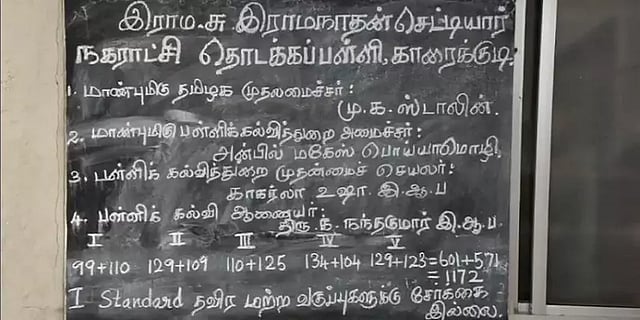 இராம.சு.இராமநாதன் செட்டியார்
நகராட்சி தொடக்கப்பள்ளி, காரைக்குடி.
1. மாண்புமிகு தமிழக முதலமைச்சர் :
மு.க.ஸ்டாலின்.
2. மாண்புமிகு பள்ளிக்கல்வித்துறை அமைச்சர் :
அன்பில் மகேஸ் பொய்யாமொழி.
3. பள்ளிக் கல்வித்துறை முதன்மைச் செயலர் :
காகர்லா உஷா.இ.ஆ.ப
4. பள்ளிக் கல்வி ஆணையர் :
திரு.ந.நந்தகுமார் இ.ஆ.ப.
I II III IV V
99+110 129+109 110+125 134+104 129+123=601+571
=1172
I Standard தவிர மற்ற வகுப்புகளுக்கு சேர்க்கை
இல்லை.